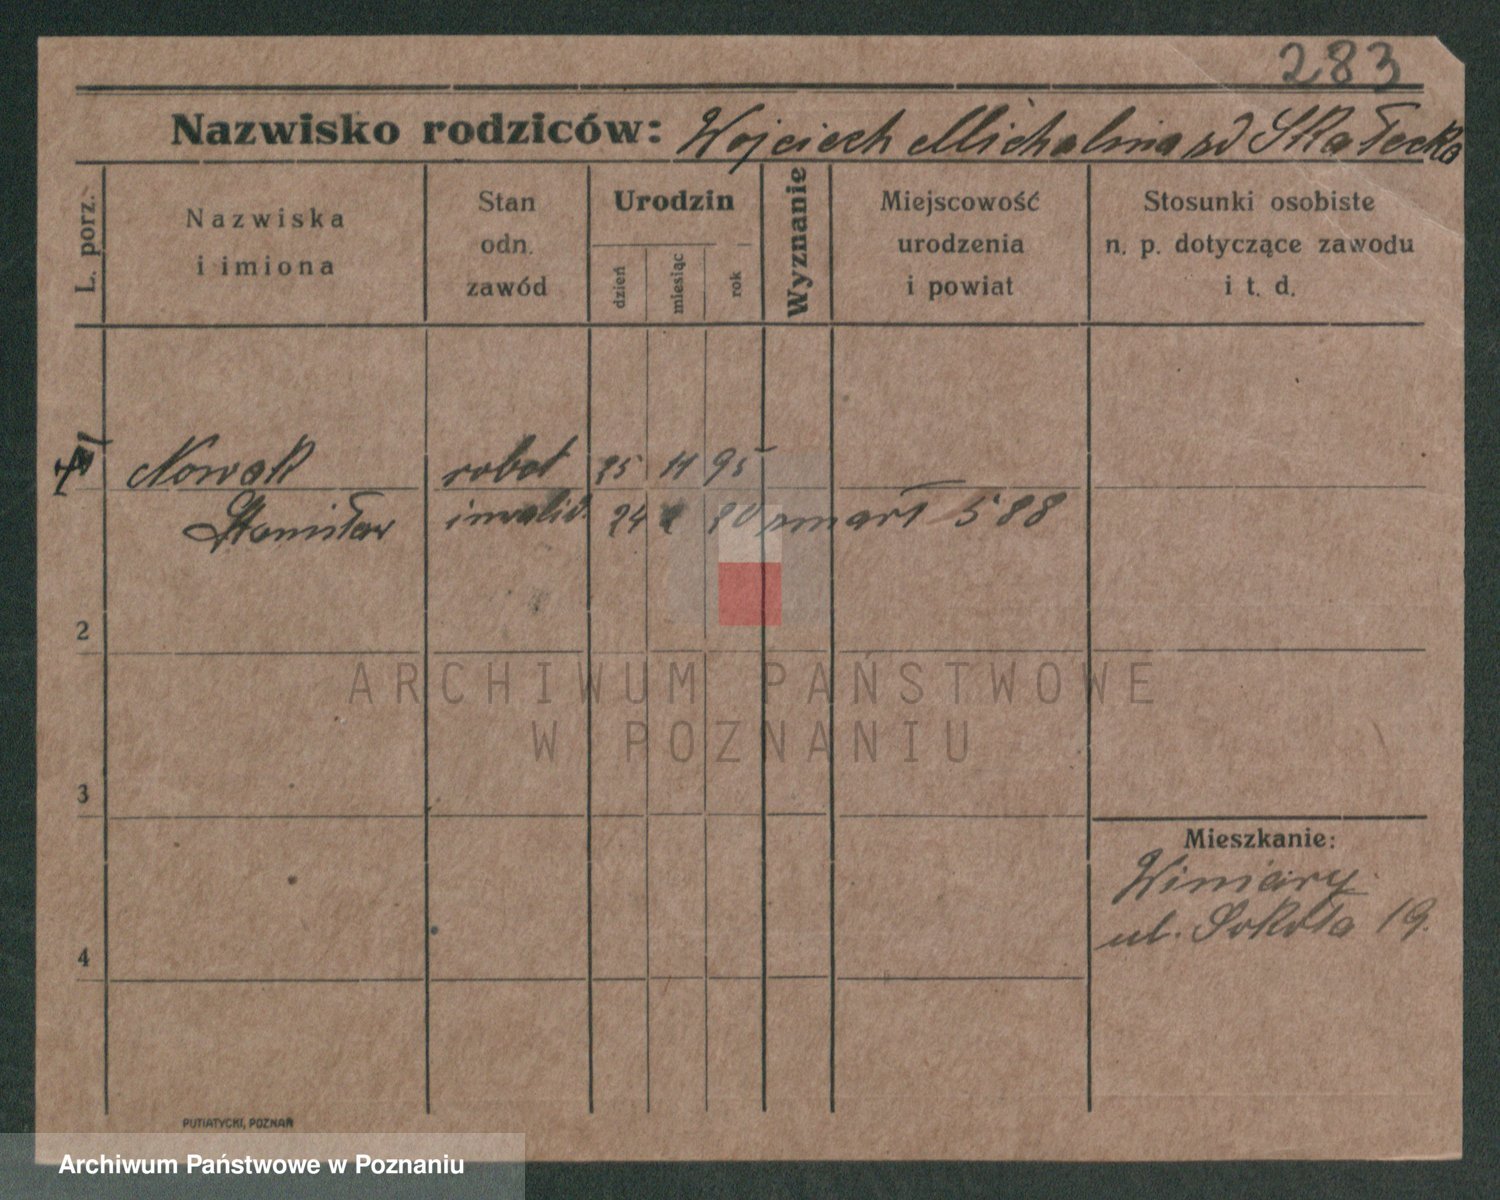 283
Nazwisko rodziców: Wojciech Michalina zd Skałecka
L. porz.
Nazwiska
i imiona
Stan
odn.
zawód
Urodzin
dzień
miesiąc
rok
Wyznanie
Miejscowość
urodzenia
i powiat
Stosunki osobiste
n. p. dotyczące zawodu
i t. d.
Nowak robot 25 11 95
Stanisław inwalid. 24 20 zmarł 588
2
3
4
Mieszkanie:
Winiary
ul. Sokoła 19.
PUTIATYCKI, POZNAŃ
ARCHIWUM PAŃSTWOWE
W POZNANIU
Archiwum Państwowe w Poznaniu